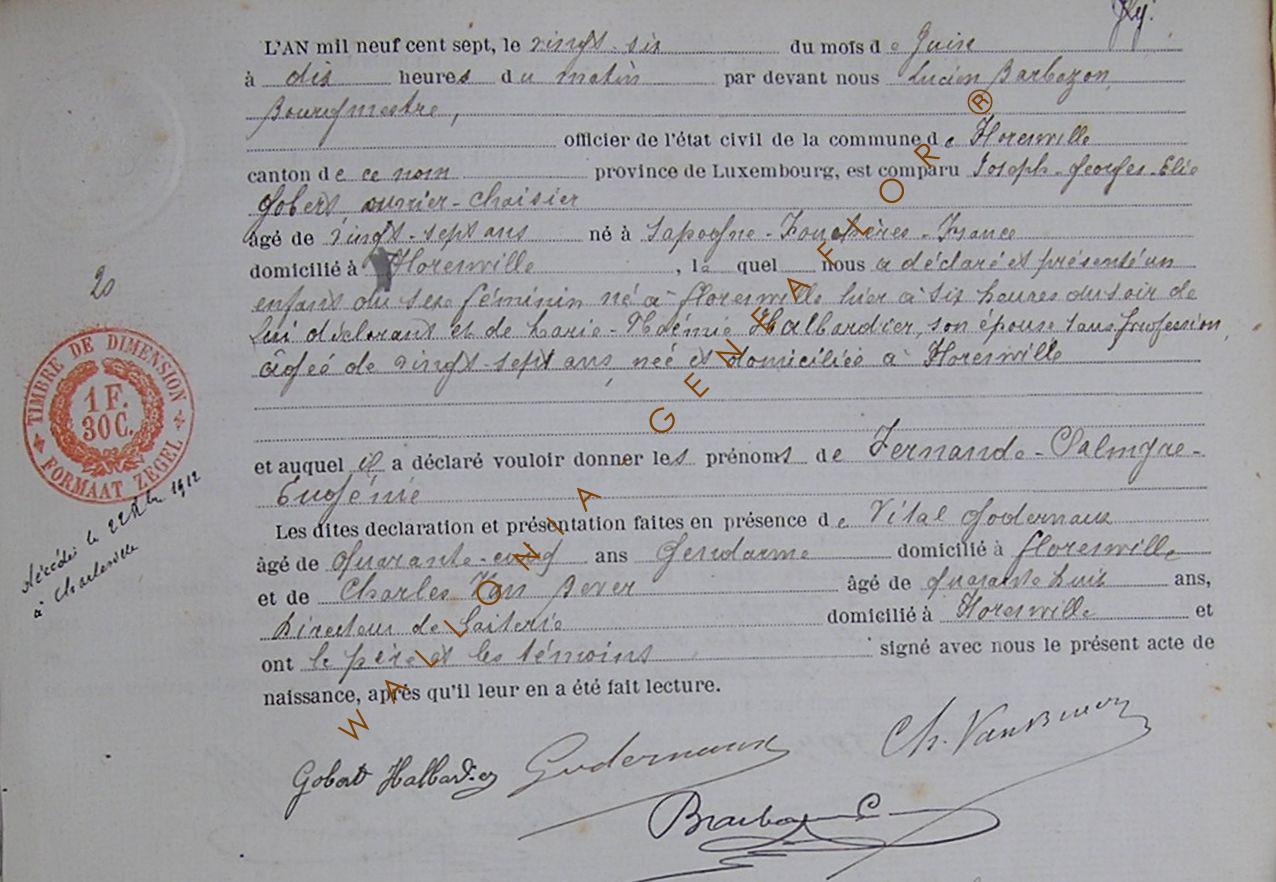 L'AN mil neuf cent sept, le vingt-six du mois de Juin
à dix heures du matin par devant nous Lucien Barbazon,
Bourgmestre,
officier de l'état civil de la commune de Florenville
canton de ce nom province de Luxembourg, est comparu Joseph-Georges-Elie
Gobert ouvrier-Chaisier
âgé de vingt-sept ans né à Sapogne-Feuchères-France
domicilié à Florenville, lequel nous a déclaré et présenté un
20
enfant du sexe féminin né à Florenville hier à six heures du soir de
lui déclarant et de Marie-Noémie Halbardier, son épouse sans profession,
âgée de vingt-sept ans, née et domiciliée à Florenville
TIMBRE DE DIMENSION
1 F.
30 C.
FORMAAT ZEGEL
et auquel il a déclaré vouloir donner les prénoms de Fernande-Palmyre-
Eugénie
Les dites declaration et présentation faites en présence de Vital Godernaux
âgé de quarante-cinq ans Gendarme domicilié à Florenville
décédée le 22 1912
à Charleville
et de Charles Van Bever âgé de quarante huit ans,
Directeur de laiterie domicilié à Florenville et
ont le père et les témoins signé avec nous le présent acte de
naissance, après qu'il leur en a été fait lecture.
WALLONIA GENEAFLOR ®
Gobert Halbardier Godernaux Ch. Van Bever
Barbazon